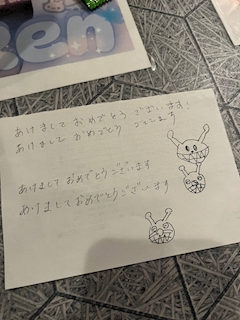 en
あけまして おめでとう ございます!
あけまして おめでとう ございます
あけまして おめでとうございます
あけましておめでとうございます